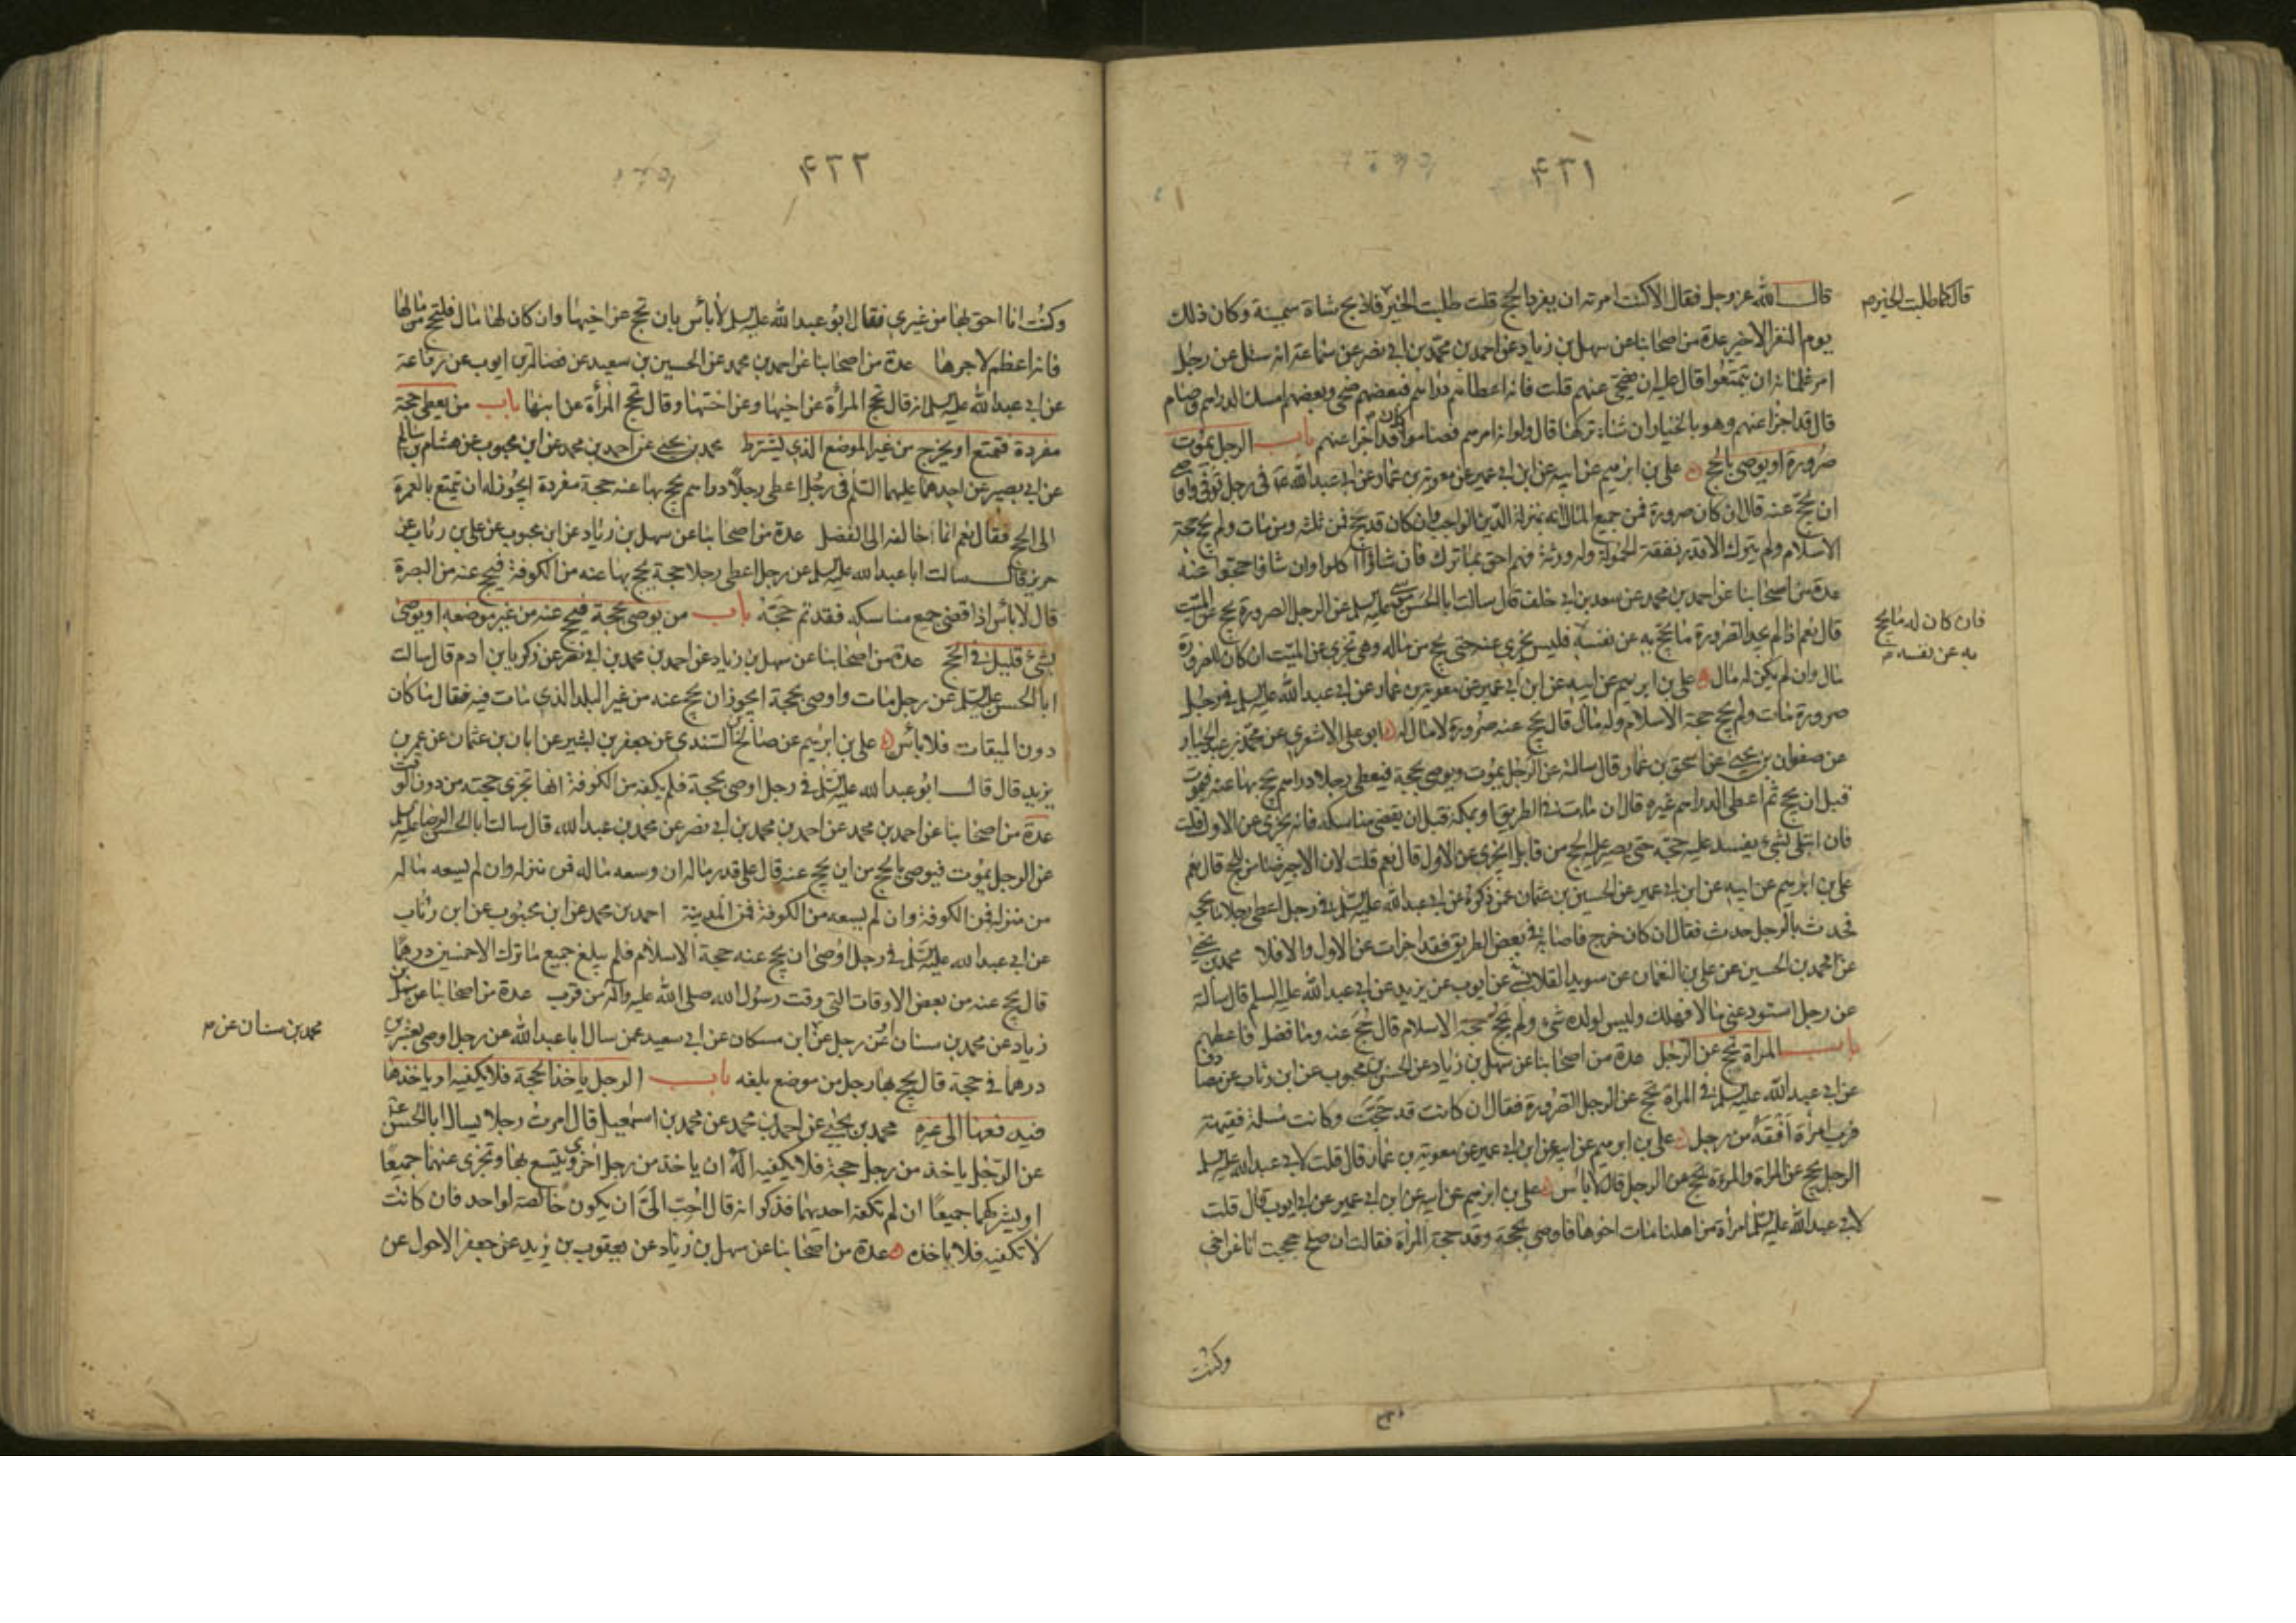 ۴۳۱
قال الله عز وجل فقال الا كنت امرته ان يفرد الحج قلت طلبت الخير فاذبح شاة سمينة وكان ذلك
قال كما طلبت الخير م
يوم النفر الاخير عدة من اصحابنا عن سهل بن زياد عن احمد بن محمد بن ابى نصر عن سماعة انه سئل عن رجل
امر غلمانه ان يتمتعوا قال عليه ان يضحى عنهم قلت فانه اعطاهم دراهم فبعضهم ضحى وبعضهم امسك الدراهم وصام
قال قد اجزا عنهم وهو بالخيار ان شاء تركها قال ولو انه امرهم فصاموا كان قد اجزا عنهم باب الرجل يموت
صرورة او يوصى بالحج علي بن ابرهيم عن ابيه عن ابن ابى عمير عن معوية بن عمار عن ابى عبد الله ع فى رجل توفى واوصى
ان يحج عنه قال ان كان صرورة فمن جميع المال انه بمنزلة الدين الواجب وان كان قد حج فمن ثلثه ومن مات ولم يحج حجة
الاسلام ولم يترك الا قدر نفقة الحمولة وله ورثة فهم احق بما ترك فان شاؤا اكلوا وان شاؤا حجوا عنه
عدة من اصحابنا عن احمد بن محمد عن سعد بن ابى خلف قال سالت ابا الحسن موسى عليه السلم عن الرجل الصرورة يحج عن الميت
قال نعم اذا لم يجد الصرورة ما يحج به عن نفسه فليس يجزى عنه حتى يحج من ماله وهى تجزى عن الميت ان كان للصرورة
فان كان له ما يحج
به عن نفسه م
مال وان لم يكن له مال علي بن ابرهيم عن ابيه عن ابن ابى عمير عن معوية بن عمار عن ابى عبد الله عليه السلم فى رجل
صرورة مات ولم يحج حجة الاسلام وله مال قال يحج عنه صرورة لا مال له ابو على الاشعرى عن محمد بن عبد الجبار
عن صفوان بن يحيى عن اسحق بن عمار قال سالته عن الرجل يموت ويوصى بحجة فيعطى رجلا دراهم يحج بها عنه فيموت
قبل ان يحج ثم اعطى الدراهم غيره قال ان مات فى الطريق او بمكة قبل ان يقضى مناسكه فانه يجزى عن الاول قلت
فان ابتلى بشىء يفسد عليه حجته حتى يصير عليه الحج من قابل ايجزى عن الاول قال نعم قلت لان الاجير ضامن للحج قال نعم
علي بن ابرهيم عن ابيه عن ابن ابى عمير عن الحسين بن عثمان عمن ذكره عن ابى عبد الله عليه السلم فى رجل اعطى رجلا ما يحجه
فحدث بالرجل حدث فقال ان كان خرج فاصابه فى بعض الطريق فقد اجزات عن الاول والا فلا محمد بن يحيى
عن محمد بن الحسين عن على بن النعمان عن سويد القلانسى عن ايوب عن بريد عن ابى عبد الله عليه السلم قال سالته
عن رجل استودعنى مالا فهلك وليس لولده شىء ولم يحج حجة الاسلام قال حج عنه وما فضل فاعطهم
باب المراة تحج عن الرجل عدة من اصحابنا عن سهل بن زياد عن الحسن بن محبوب عن ابن رئاب عن مصادف
عن ابى عبد الله عليه السلم فى المراة تحج عن الرجل الصرورة فقال ان كانت قد حجت وكانت مسلمة فقيهة
فرب امرأة افقه من رجل علي بن ابرهيم عن ابيه عن ابن ابى عمير عن معوية بن عمار قال قلت لابى عبد الله عليه السلم
الرجل يحج عن المراة والمرءة تحج عن الرجل قال لا بأس علي بن ابرهيم عن ابيه عن ابن ابى عمير عن ابى ايوب قال قلت
لابى عبد الله عليه السلم امرأة من اهلنا مات اخوها فاوصى بحجة وقد حجت المرأة فقالت ان صلح حججت انا عن اخى
وكنت
۴۳۲
وكنت انا احق بها من غيرى فقال ابو عبد الله عليه السلم لا بأس بان تحج عن اخيها وان كان لها مال فلتحج من مالها
فانه اعظم لاجرها عدة من اصحابنا عن احمد بن محمد عن الحسين بن سعيد عن فضالة بن ايوب عن رفاعة
عن ابى عبد الله عليه السلم انه قال تحج المرأة عن اخيها وعن اختها وقال تحج المرأة عن ابنها باب من يعطى حجة
مفردة فتمتع او يخرج من غير الموضع الذى يشترط محمد بن يحيى عن احمد بن محمد عن ابن محبوب عن هشام بن سالم
عن ابى بصير عن احدهما عليهما السلم فى رجل اعطى رجلا دراهم يحج بها عنه حجة مفردة ايجوز له ان يتمتع بالعمرة
الى الحج فقال نعم انما خالفه الى الفضل عدة من اصحابنا عن سهل بن زياد عن ابن محبوب عن على بن رئاب عن
حريز قال سالت ابا عبد الله عليه السلم عن رجل اعطى رجلا حجة يحج بها عنه من الكوفة فحج عنه من البصرة
قال لا بأس اذا قضى جميع مناسكه فقد تم حجه باب من يوصى بحجة فيحج عنه من غير موضعه او يوصى
بشىء قليل فى الحج عدة من اصحابنا عن سهل بن زياد عن احمد بن محمد بن ابى نصر عن زكريا بن ادم قال سالت
ابا الحسن عليه السلم عن رجل مات واوصى بحجة ايجوز ان يحج عنه من غير البلد الذى مات فيه فقال ما كان
دون الميقات فلا بأس علي بن ابرهيم عن صالح السندى عن جعفر بن بشير عن ابان بن عثمان عن عمر بن
يزيد قال قال ابو عبد الله عليه السلم فى رجل اوصى بحجة فلم يكفه من الكوفة انها تجزى حجته من دون الوقت
عدة من اصحابنا عن احمد بن محمد عن احمد بن محمد بن ابى نصر عن محمد بن عبد الله قال سالت ابا الحسن الرضا عليه السلم
عن الرجل يموت فيوصى بالحج من اين يحج عنه قال على قدر ماله ان وسعه ماله فمن منزله وان لم يسعه ماله
من منزله فمن الكوفة وان لم يسعه من الكوفة فمن المدينة احمد بن محمد عن ابن محبوب عن ابن رئاب
عن ابى عبد الله عليه السلم فى رجل اوصى ان يحج عنه حجة الاسلام فلم يبلغ جميع ما ترك الا خمسين درهما
قال يحج عنه من بعض الاوقات التى وقت رسول الله صلى الله عليه وآله من قرب عدة من اصحابنا عن سهل بن
زياد عن محمد بن سنان عن رجل عن ابن مسكان عن ابى سعيد عمن سال ابا عبد الله عن رجل اوصى بعشرين
محمد بن سنان عن م
درهما فى حجة قال يحج بها رجل من موضع بلغه باب الرجل ياخذ الحجة فلا يكفيه او ياخذها
فيدفعها الى غيره محمد بن يحيى عن احمد بن محمد عن محمد بن اسمعيل قال امرت رجلا يسال ابا الحسن ع
عن الرجل ياخذ من رجل حجة فلا يكفيه اله ان ياخذ من رجل اخرى ويتسع بها وتجزى عنهما جميعا
او يشركهما جميعا ان لم تكفه احديهما فذكر انه قال احب الى ان يكون خالصة لواحد فان كانت
لا تكفيه فلا ياخذه عدة من اصحابنا عن سهل بن زياد عن يعقوب بن يزيد عن جعفر الاحول عن